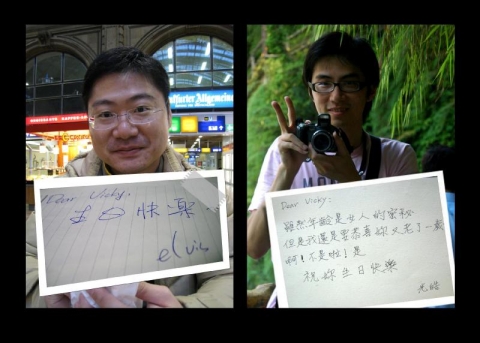 furter Allgemeine
Dear Vicky:
生日快樂
elvis
Dear Vicky:
雖然年齡是女人的密祕
但是我還是要恭喜妳又老了一歲
啊!不是啦!是
祝妳生日快樂